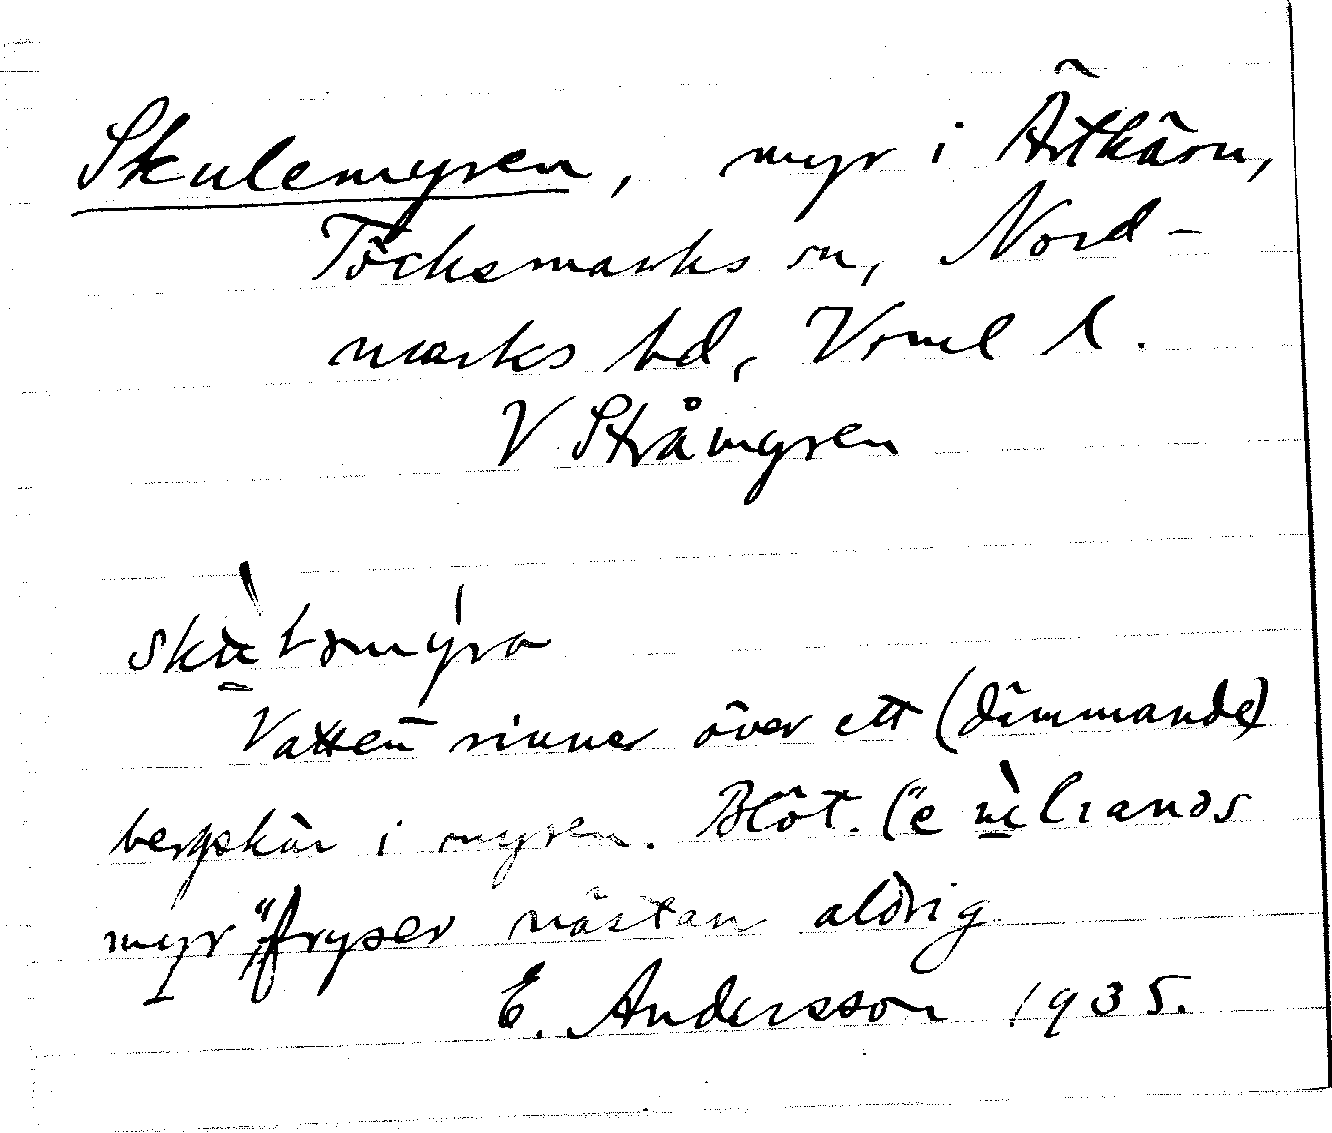 Skulemyren, myr i Ärtkärn,
Töcksmarks sn, Nord-
marks hd, Vrml l.
V Strångren
Vatten rinner över ett (dämmande)
bergskär i myren. Blöt. ("e
myr" fryser nästan aldrig
E. Andersson 1935.